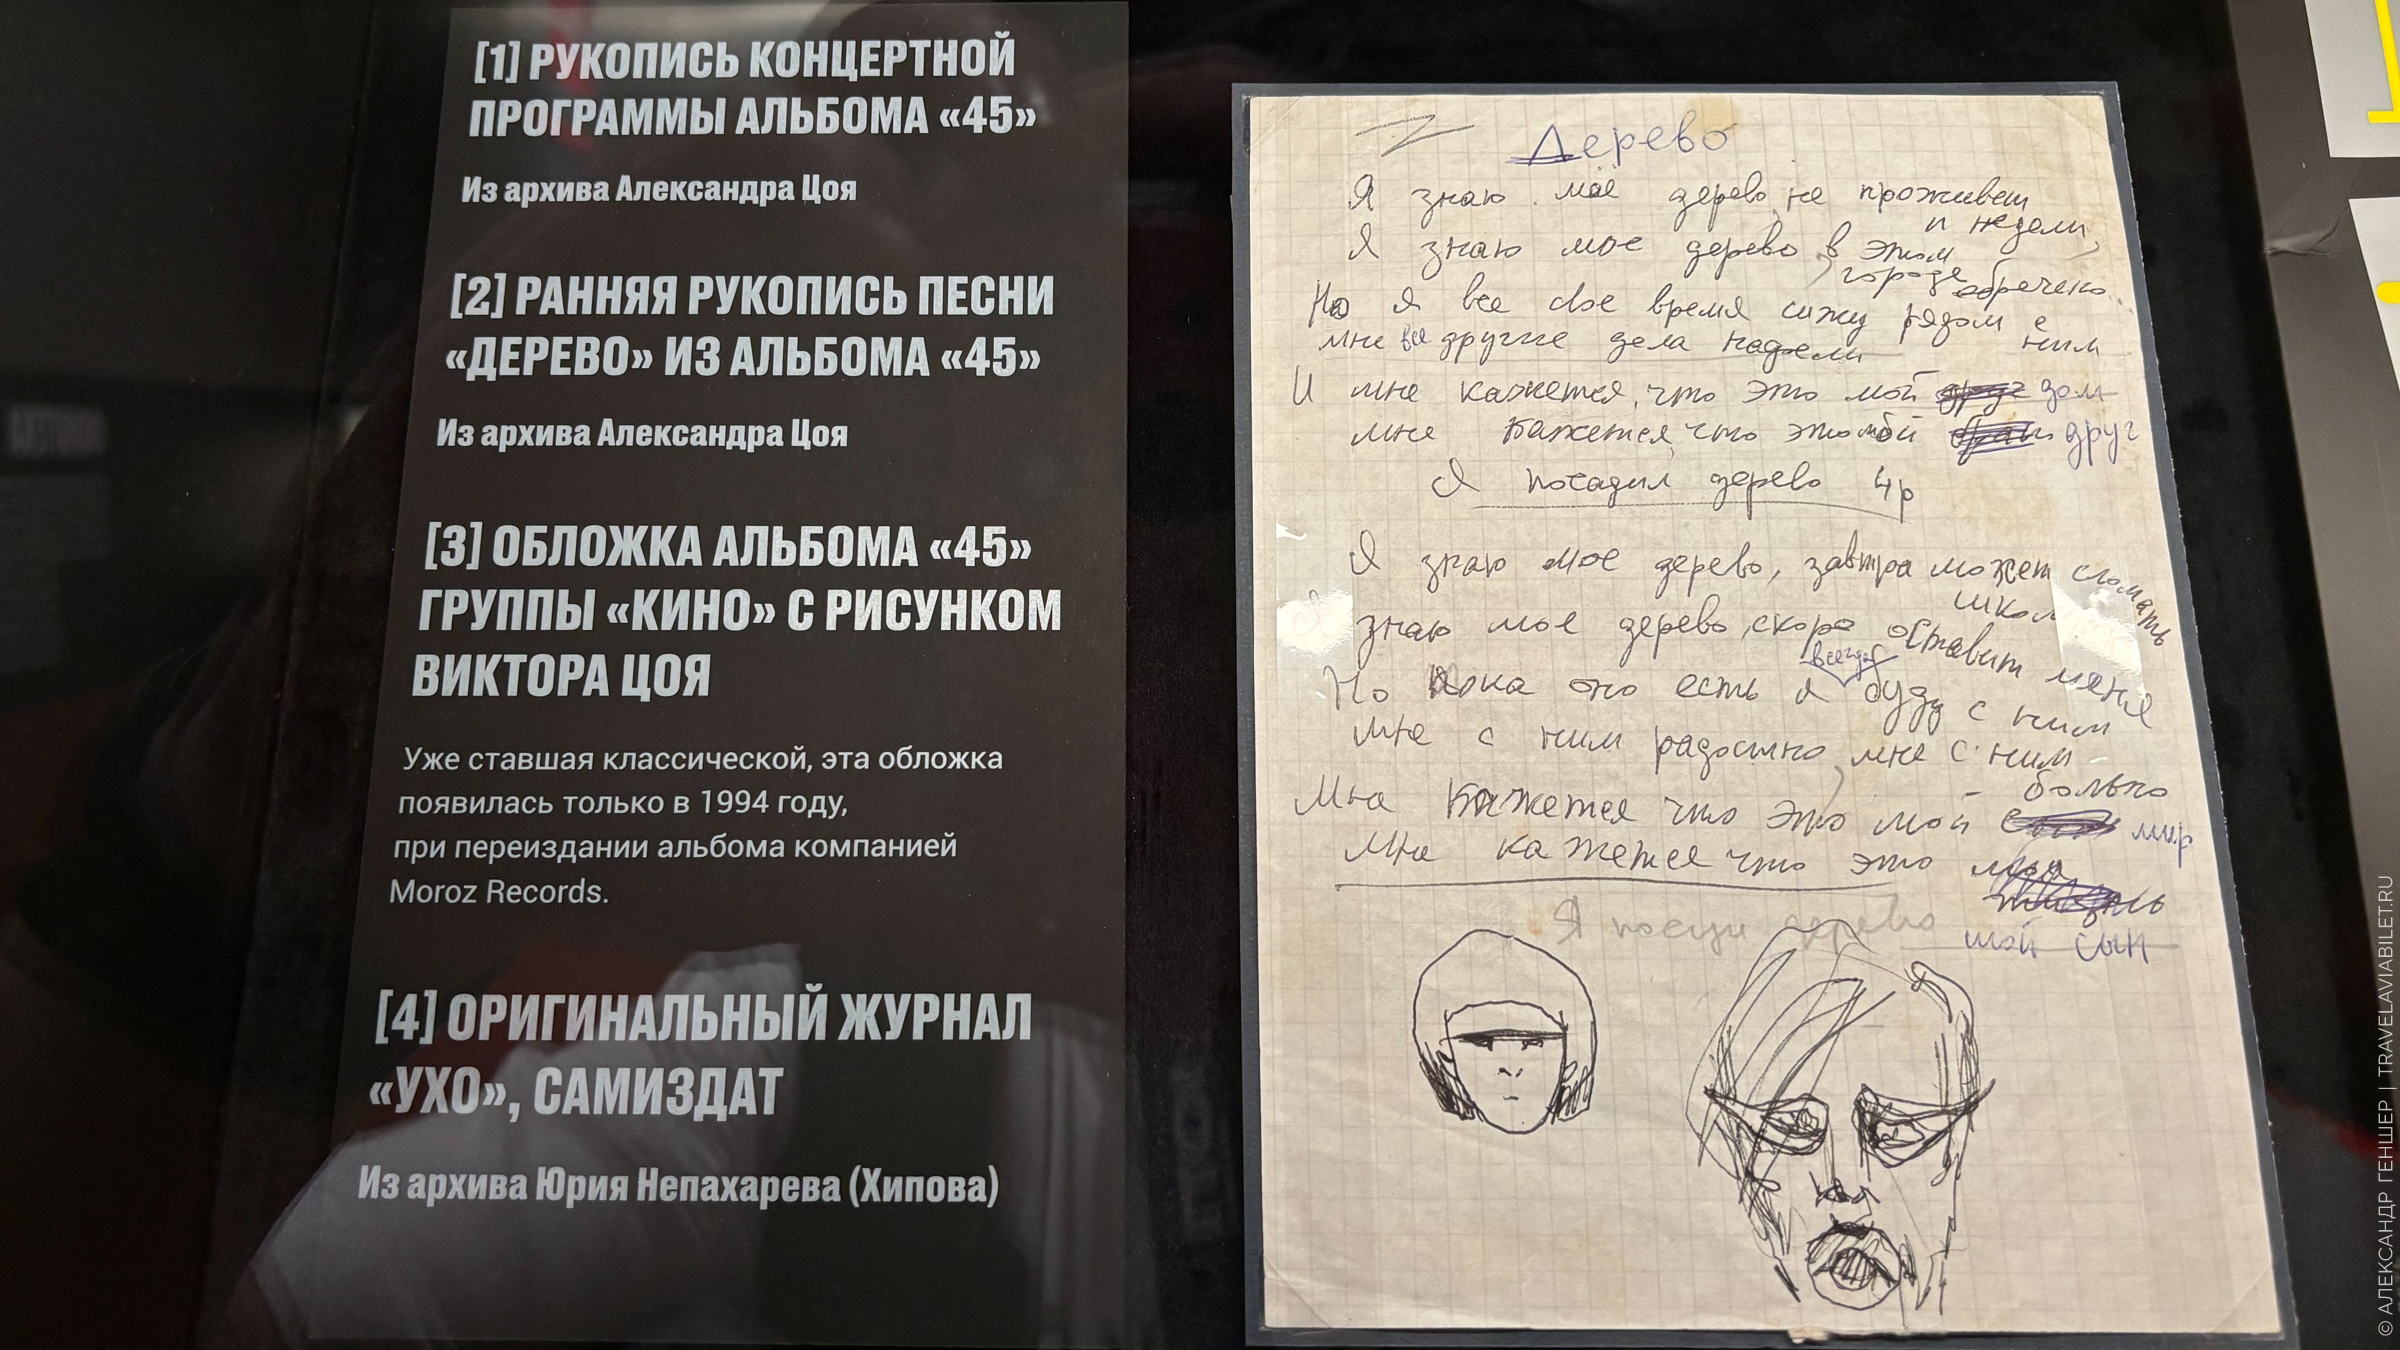 [1] РУКОПИСЬ КОНЦЕРТНОЙ
ПРОГРАММЫ АЛЬБОМА «45»
Из архива Александра Цоя
[2] РАННЯЯ РУКОПИСЬ ПЕСНИ
«ДЕРЕВО» ИЗ АЛЬБОМА «45»
Из архива Александра Цоя
[3] ОБЛОЖКА АЛЬБОМА «45»
ГРУППЫ «КИНО» С РИСУНКОМ
ВИКТОРА ЦОЯ
Уже ставшая классической, эта обложка
появилась только в 1994 году,
при переиздании альбома компанией
Moroz Records.
[4] ОРИГИНАЛЬНЫЙ ЖУРНАЛ
«УХО», САМИЗДАТ
Из архива Юрия Непахарева (Хипова)
Дерево
Я знаю моё дерево, не проживет
и недели,
Я знаю мое дерево в этом
городе обречено
Но я все свое время сижу рядом с
ним
мне все другие дела надоели
И мне кажется, что это мой дом
мне кажется, что это мой друг
Я посадил дерево 4р
Я знаю мое дерево, завтра может сломать
школьник
Я знаю мое дерево, скоро оставит меня
всегда
Но пока оно есть я буду с ним
мне с ним радостно, мне с ним
больно
Мне кажется что это мой мир
Мне кажется что это
мой сын
Я посади дерево
© АЛЕКСАНДР ГЕНШЕР | TRAVELAVIABILET.RU